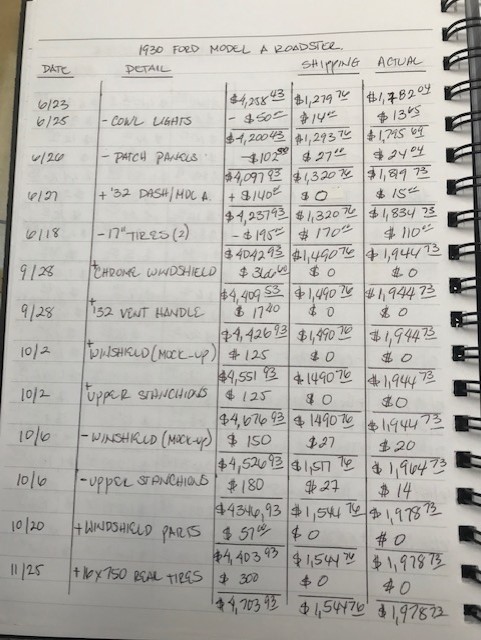 1930 FORD MODEL A ROADSTER
DATE DETAIL SHIPPING ACTUAL
6/23 $4,258 43 $1,279 76 $1,782 04
6/25 - COWL LIGHTS - $50 $14 $13 65
$4,200 43 $1,293 76 $1,795 69
6/26 - PATCH PANELS - $102 50 $27 $24 04
$4,097 93 $1,320 76 $1,819 73
6/27 + '32 DASH/MDL A. + $140 $0 $15
$4,237 93 $1,320 76 $1,834 73
6/18 - 17" TIRES (2) - $195 $170 $110
$4042 93 $1,490 76 $1,944 73
9/28 + CHROME WINDSHIELD $366 60 $0 $0
$4,409 53 $1,490 76 $1,944 73
9/28 + '32 VENT HANDLE $17 40 $0 $0
$4,426 93 $1,490 76 $1,944 73
10/2 + WINDSHIELD (MOCK-UP) $125 $0 $0
$4,551 93 $1490 76 $1,944 73
10/2 + UPPER STANCHIONS $125 $0 $0
$4,676 93 $1490 76 $1,944 73
10/6 - WINSHIELD (MOCK-UP) $150 $27 $20
$4,526 93 $1,517 76 $1,964 73
10/6 - UPPER STANCHIONS $180 $27 $14
$4346,93 $1,544 76 $1,978 73
10/20 + WINDSHIELD PARTS $57 00 $0 $0
$4,403 93 $1,544 76 $1,978 73
11/25 + 16x750 REAR TIRES $300 $0 $0
$4,703 93 $1,544 76 $1,978 73